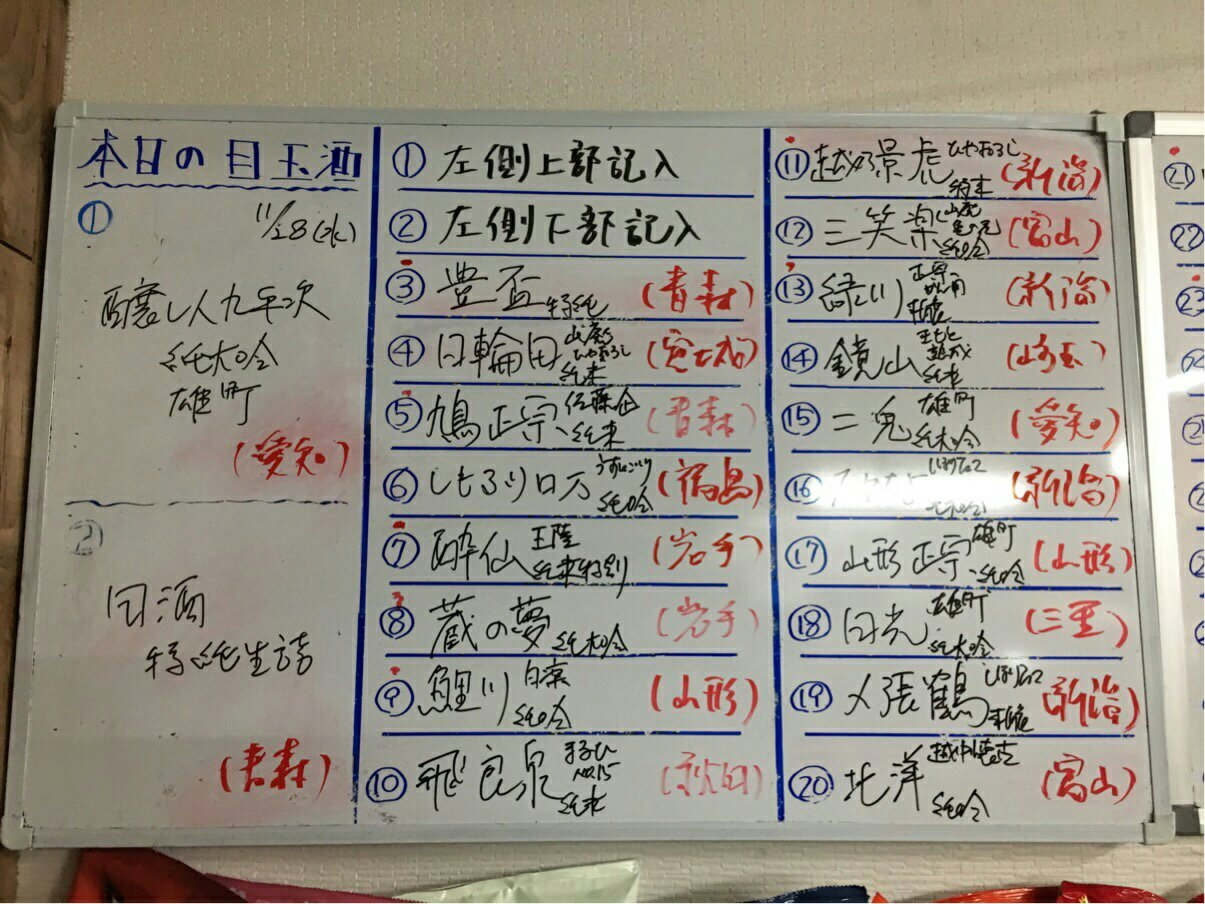 本日の目玉酒
① 11/28(水)
醸し人九平次
純大吟
雄町
(愛知)
②
田酒
特純生詰
(青森)
① 左側上部記入
② 左側下部記入
③ 豊盃 特純 (青森)
④ 日輪田 山廃 ひやおろし 純米 (宮城)
⑤ 鳩正宗 佐藤企 純米 (青森)
⑥ しもふり ロ万 うすにごり 純吟 (福島)
⑦ 酔仙 純米特別 (岩手)
⑧ 蔵の夢 純大吟 (岩手)
⑨ 鯉川 純吟 (山形)
⑩ 飛良泉 まるひ No.15 純米 (秋田)
⑪ 越乃景虎 ひやおろし 純米 (新潟)
⑫ 三笑楽 山廃 純吟 (富山)
⑬ 緑川 正宗 (新潟)
⑭ 鏡山 純米 (埼玉)
⑮ 二兎 雄町 純大吟 (愛知)
⑯ しぼりたて (新潟)
⑰ 山形正宗 雄町 純吟 (山形)
⑱ 田光 雄町 純大吟 (三重)
⑲ 〆張鶴 しぼりたて (新潟)
⑳ 北洋 純吟 (富山)
㉑
㉒
㉓